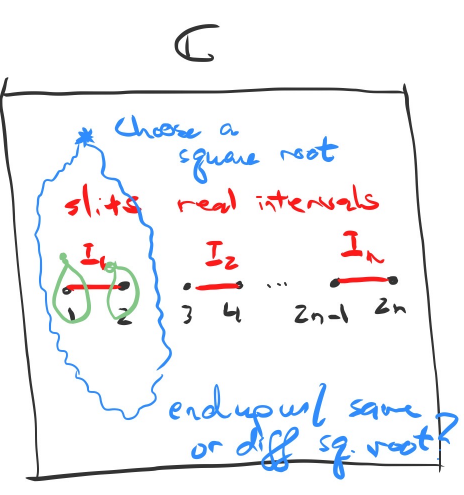 C
choose a
square root
slits real intervals
I1 I2 In
1 2 3 4 ... 2n-1 2n
end up w/ same
or diff sq. root?